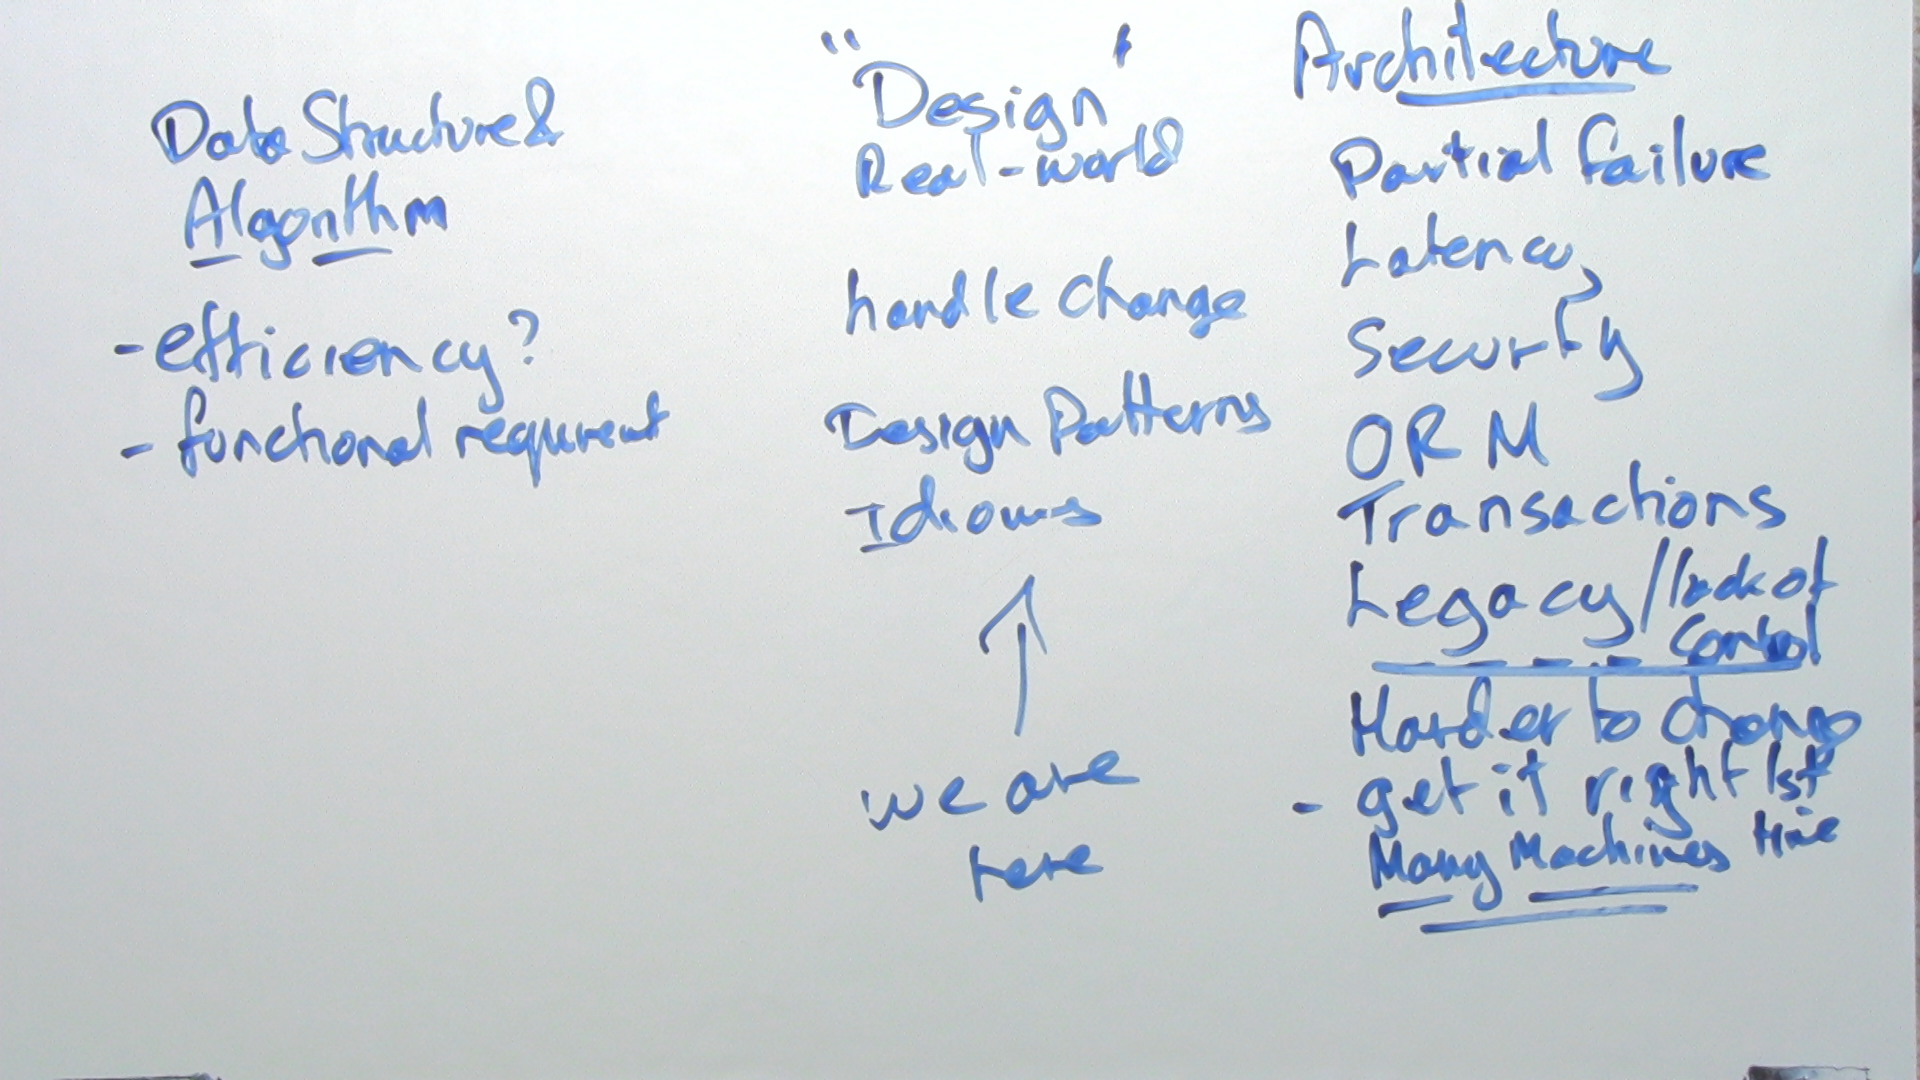 Data Structure &
Algorithm
- efficiency?
- functional requirement
"Design"
Real-world
handle change
Design Patterns
Idioms
we are
here
Architecture
Partial failure
Latency
Security
ORM
Transactions
Legacy/lack of
control
Harder to change
- get it right 1st
time
Many Machines